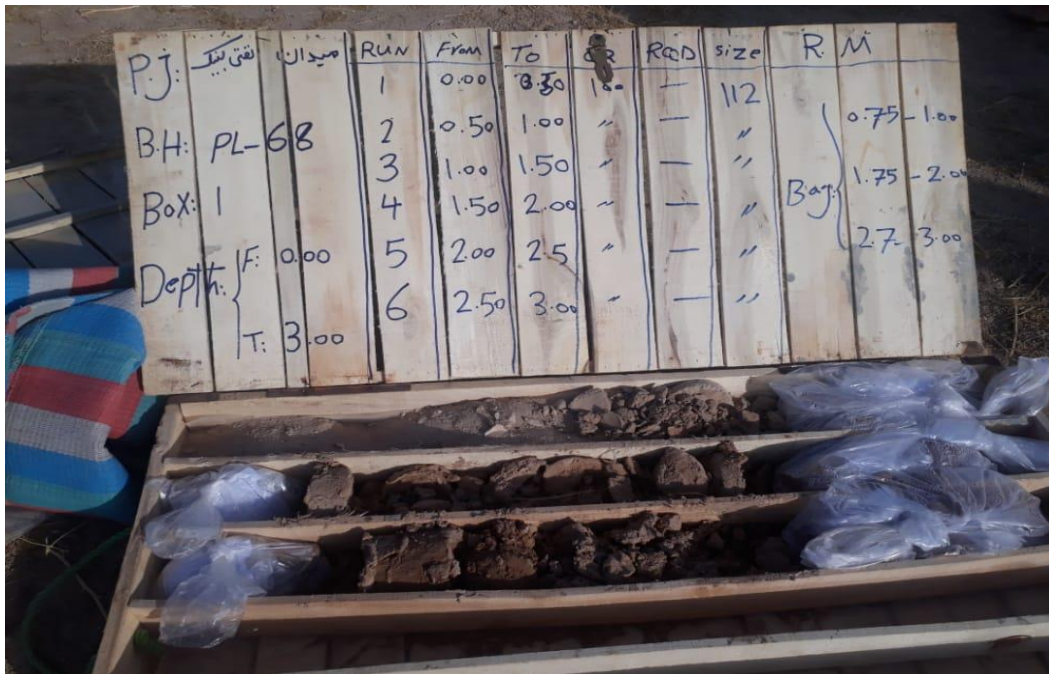 P.J: میدان نفتی بینک
B.H: PL-68
Box: 1
Depth: F: 0.00
T: 3.00
RUN From To CR RQD size R. M
1 0.00 0.50 100 — 112
2 0.50 1.00 " — "
3 1.00 1.50 " — "
4 1.50 2.00 " — "
5 2.00 2.5 " — "
6 2.50 3.00 " — "
Bag: 0.75 - 1.00
1.75 - 2.00
2.7 - 3.00